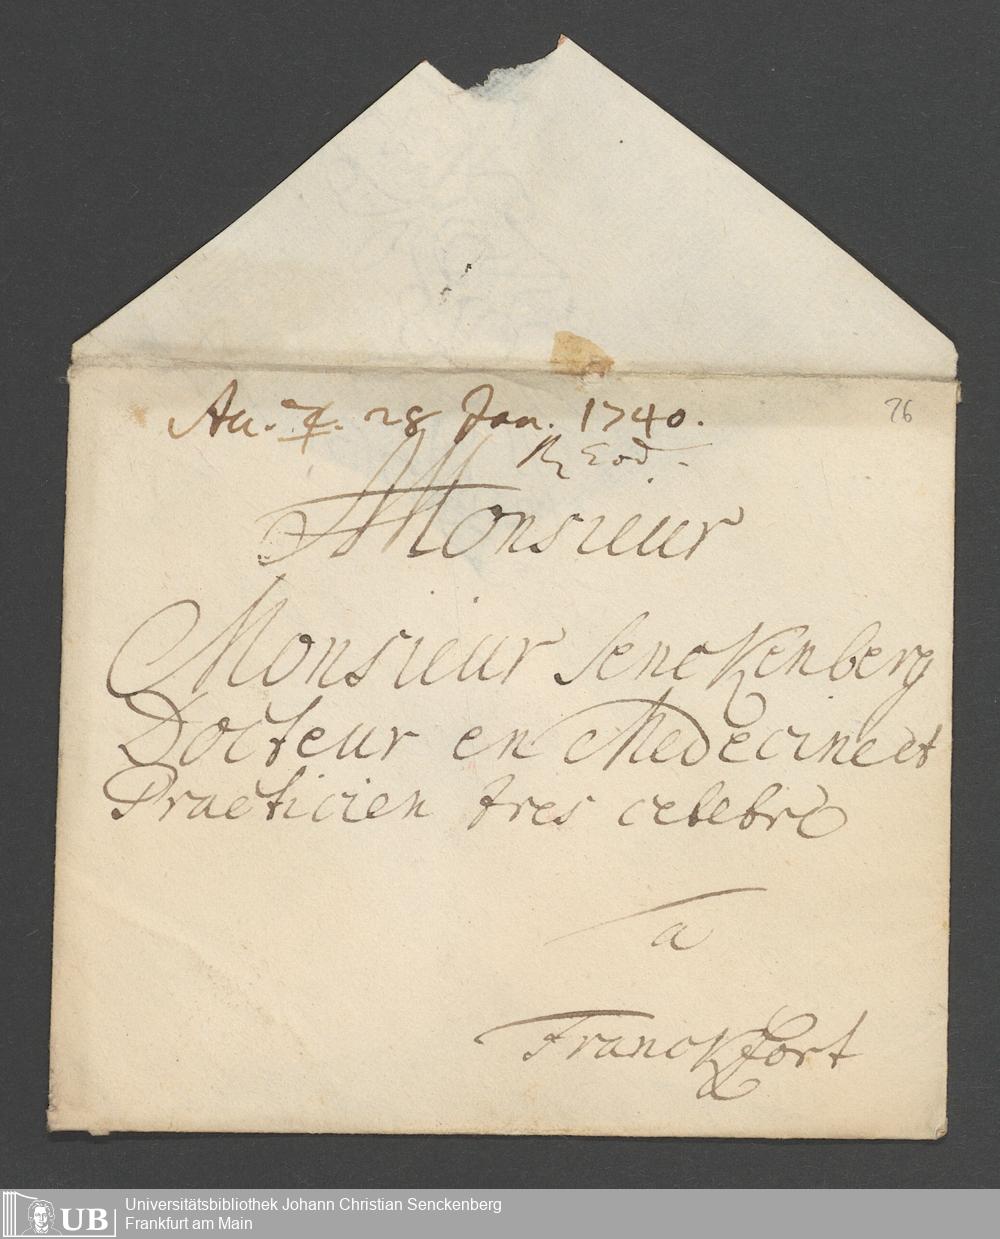 28 Jan. 1740.
26
Eod.
Monsieur
Monsieur Senckenberg
Docteur en Medecine et
Practicien tres celebre
a
Franckfort
UB
Universitätsbibliothek Johann Christian Senckenberg
Frankfurt am Main